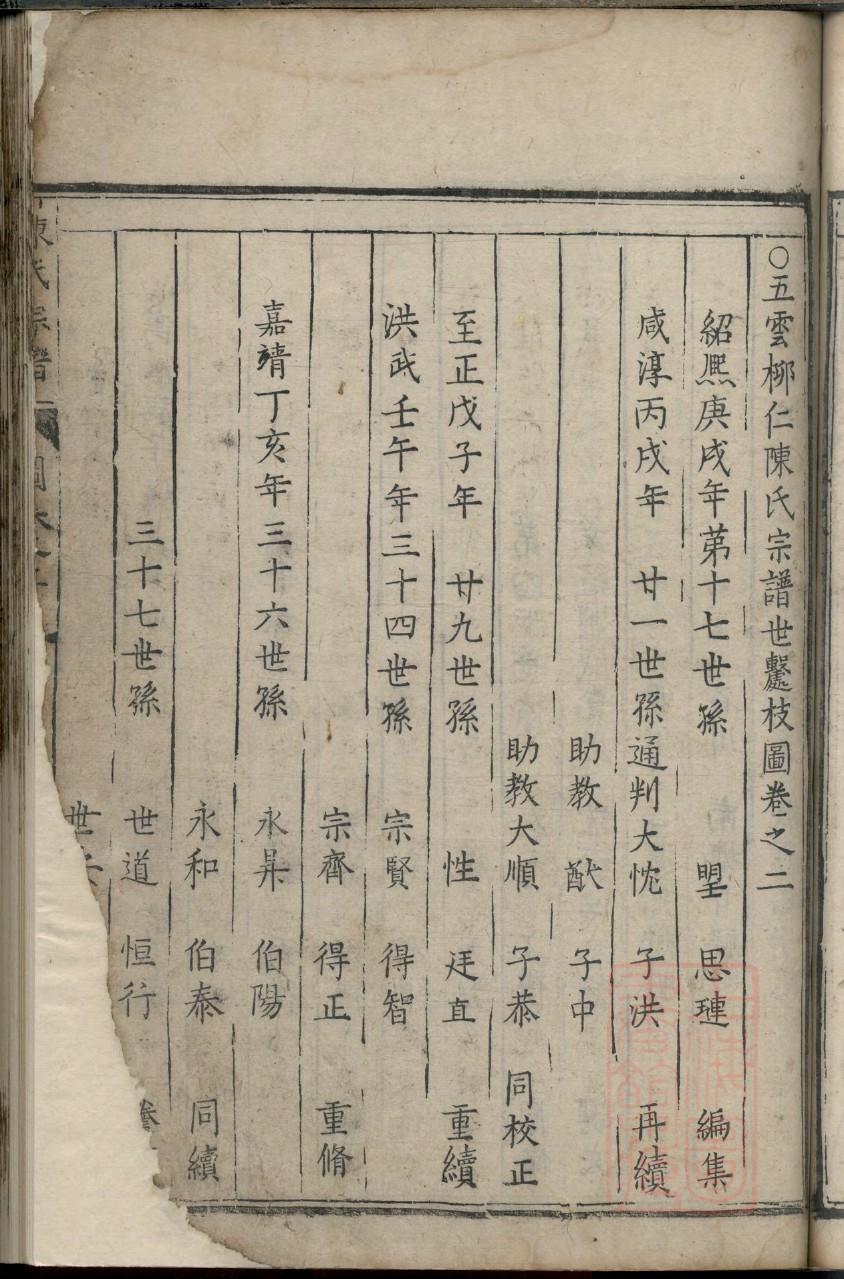 ○五雲栁仁陳氏宗譜世繫枝圖卷之二
紹熈庚戌年苐十七世孫 塱 思璉 編集
咸淳丙戌年 廿一世孫通判大忱 子洪 再續
助教 猷 子中
助教大順 子恭 同校正
至正戊子年 廿九世孫 性 廷直 重續
洪武壬午年三十四世孫 宗賢 得智
宗齊 得正 重脩
嘉靖丁亥年三十六世孫 永昇 伯陽
永和 伯泰 同續
三十七世孫 世道 恒行
世
陳氏宗譜